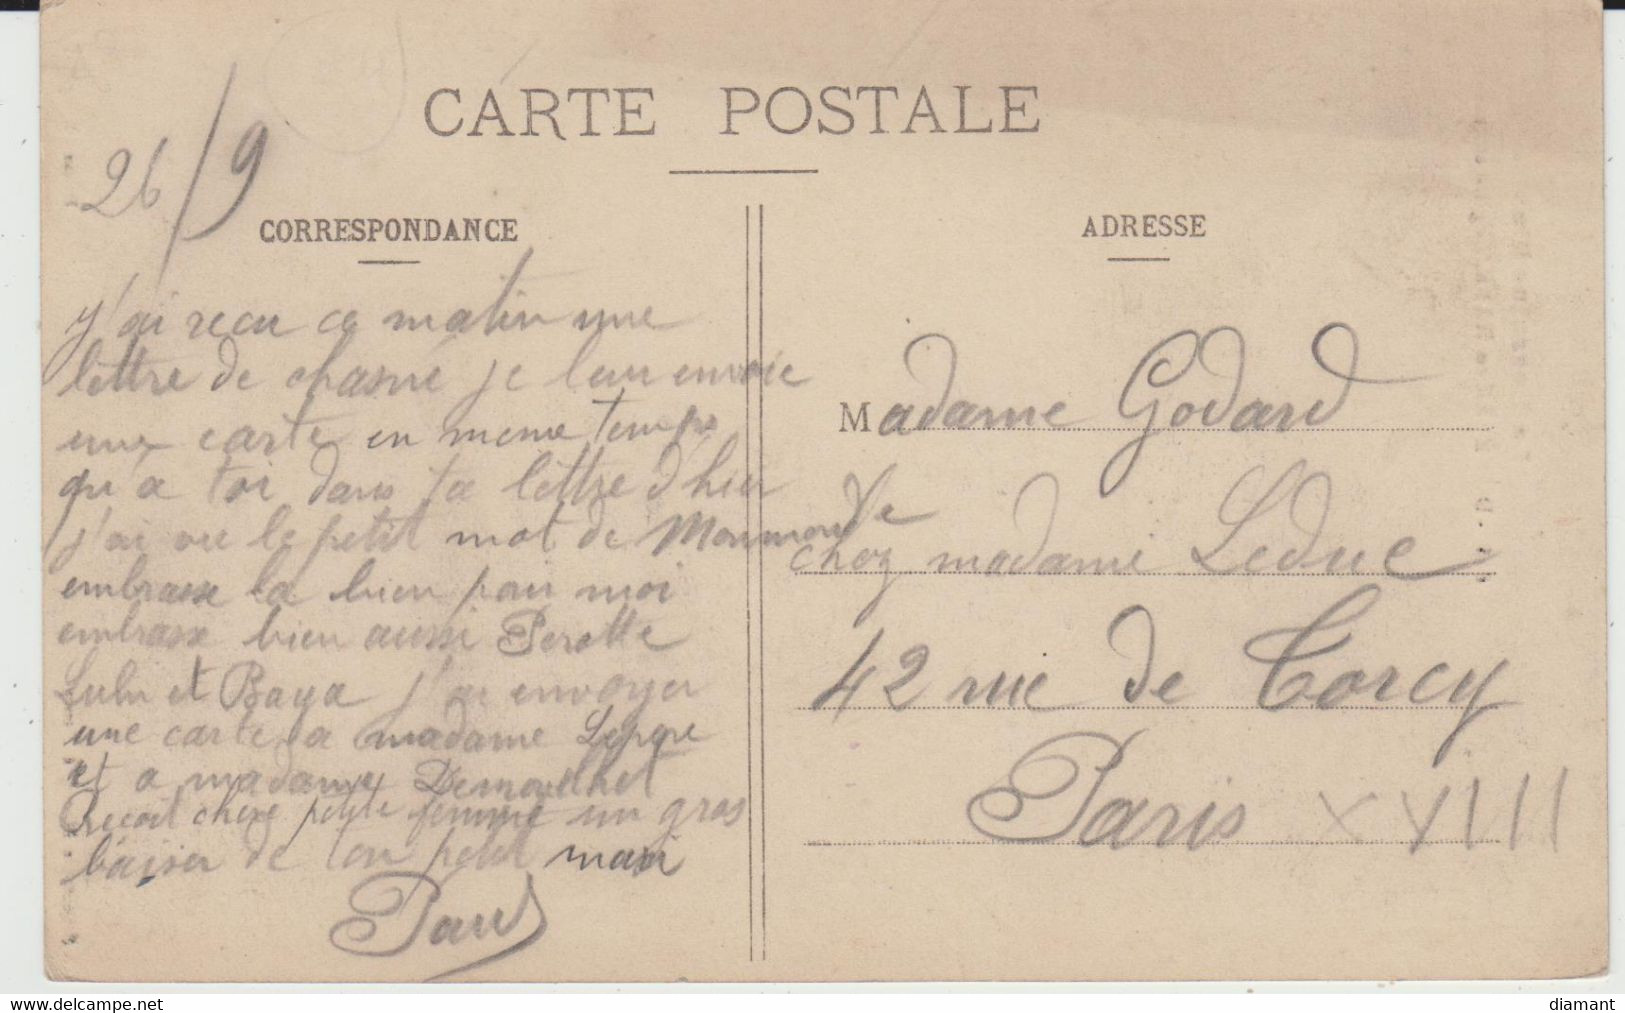 CARTE POSTALE
26/9
CORRESPONDANCE
j'ai recu ce matin une
lettre de chasné je leur envoie
une carte en meme temps
qu'a toi dans ta lettre d'hier
j'ai vu le petit mot de
embrasse la bien pour moi
embrasse bien aussi Perotte
Lulu et Baya j'ai envoyer
une carte a madame Lepere
et a madame
recoit chere petite femme un gros
baiser de ton petit mari
Paul
ADRESSE
Madame Godard
chez madame Vve Leduc
42 rue de Torcy
Paris XVIII
www.delcampe.net
diamant